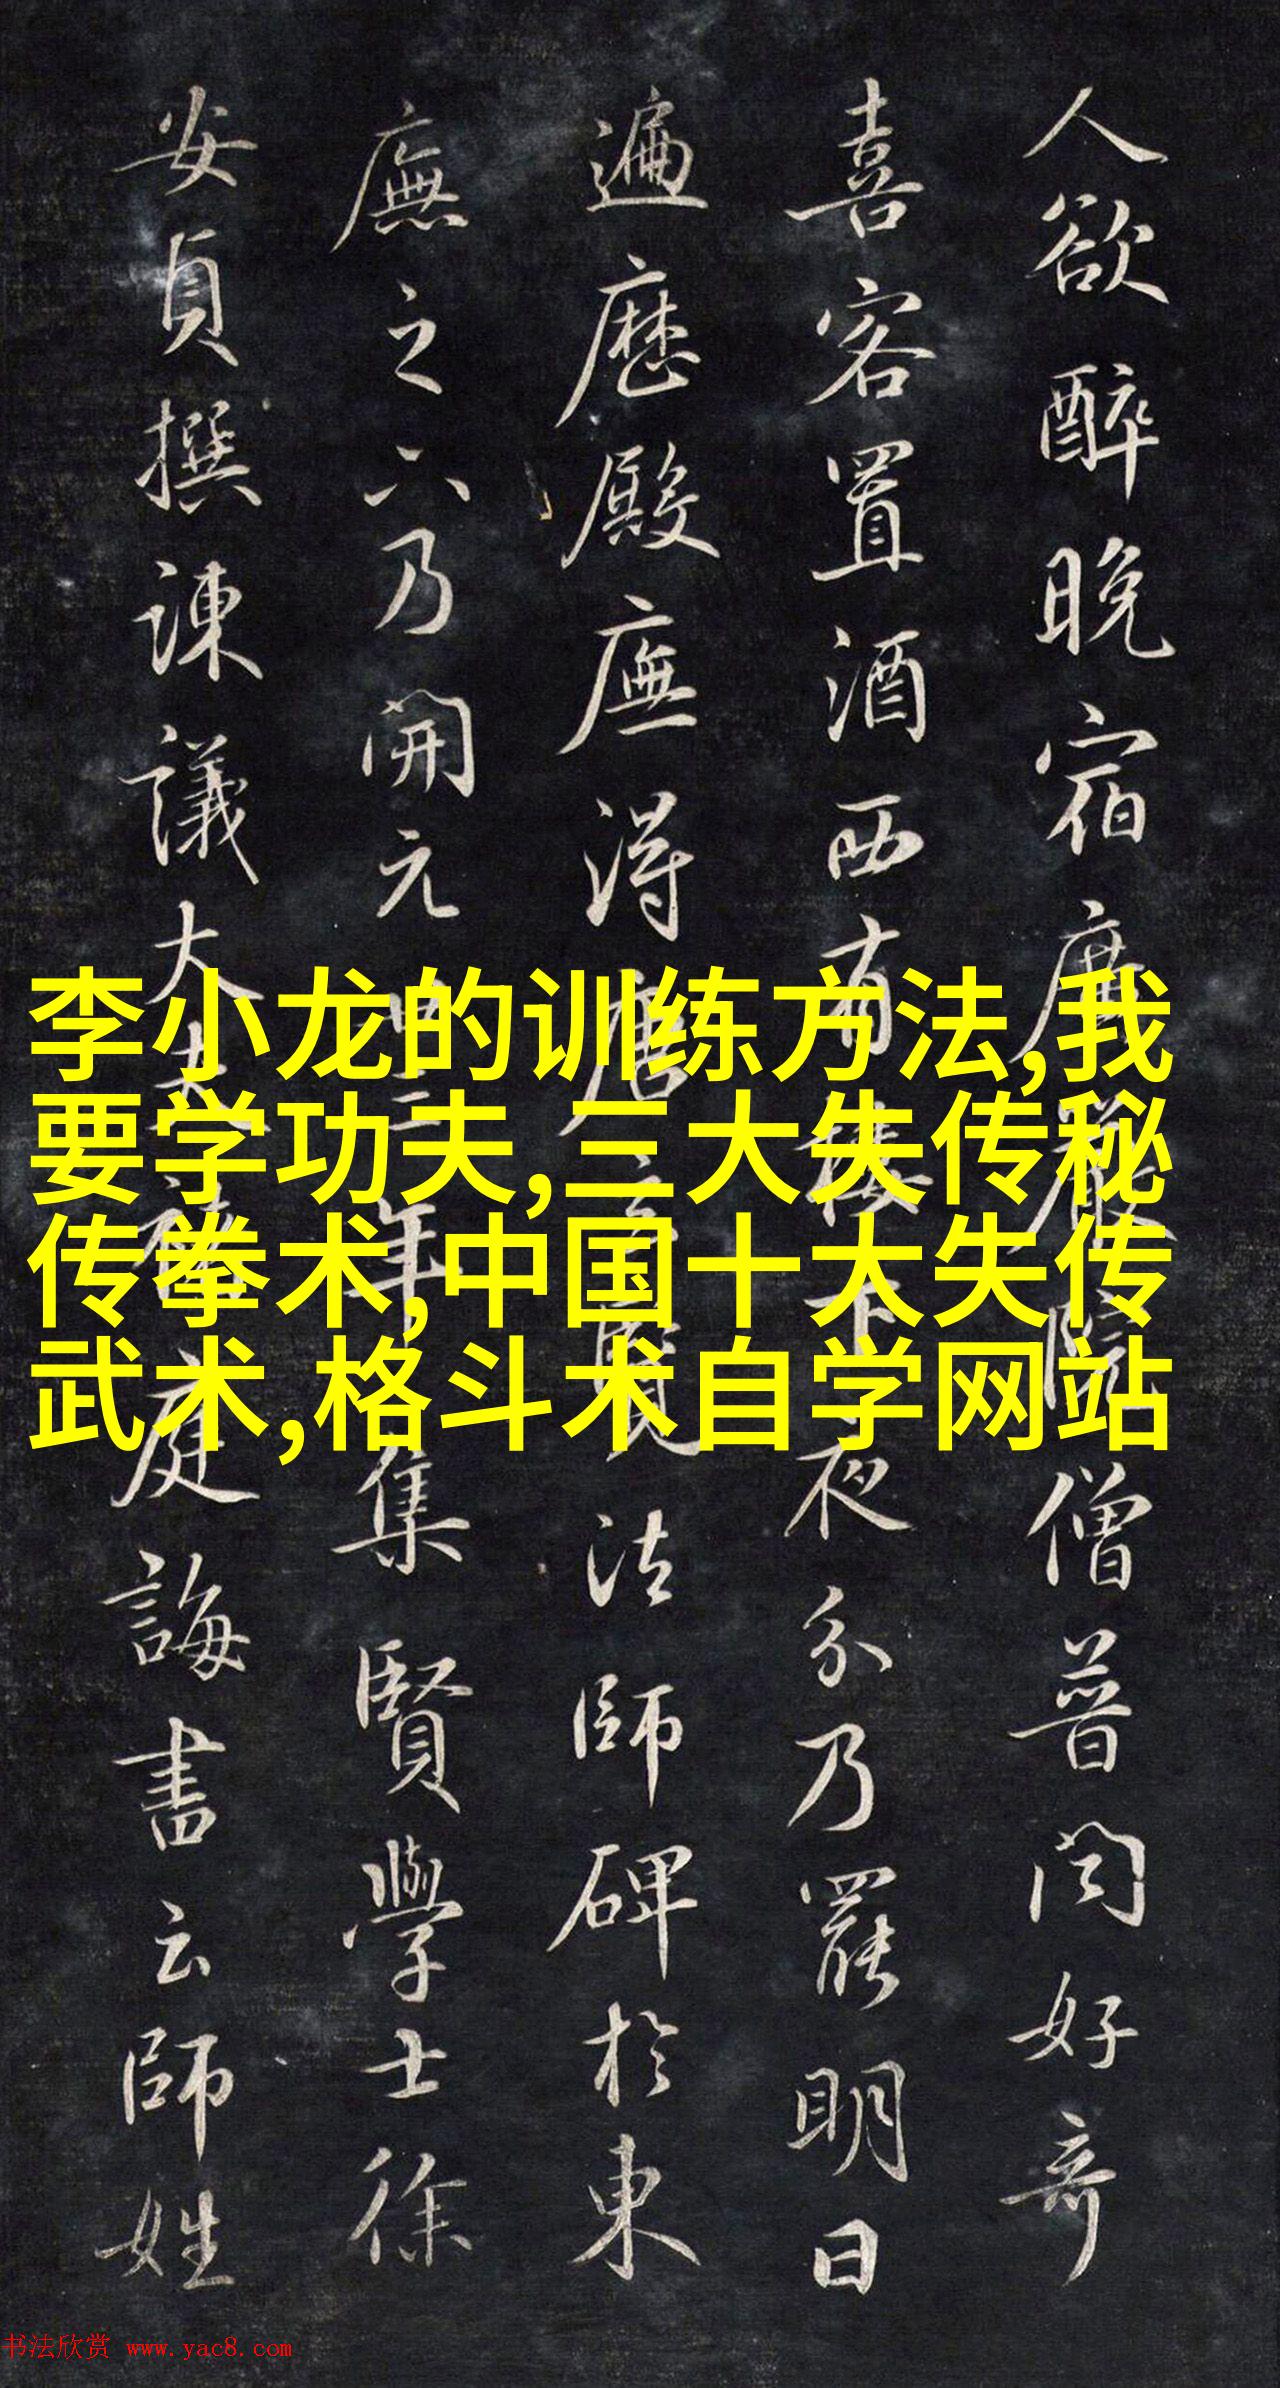 人欲醉晚宿廣嚴院僧普聞好奇
喜客置酒西有樓下夜分乃罷明日
遍歷殿廡得唐玄覽法師碑於東
廡之下乃開元年集賢學士徐
安貞撰諫議大夫褚庭誨書云師姓
李小龙的训练方法,我
要学功夫,三大失传秘
传拳术,中国十大失传
武术,格斗术自学网站
书法欣赏 www.yac8.com